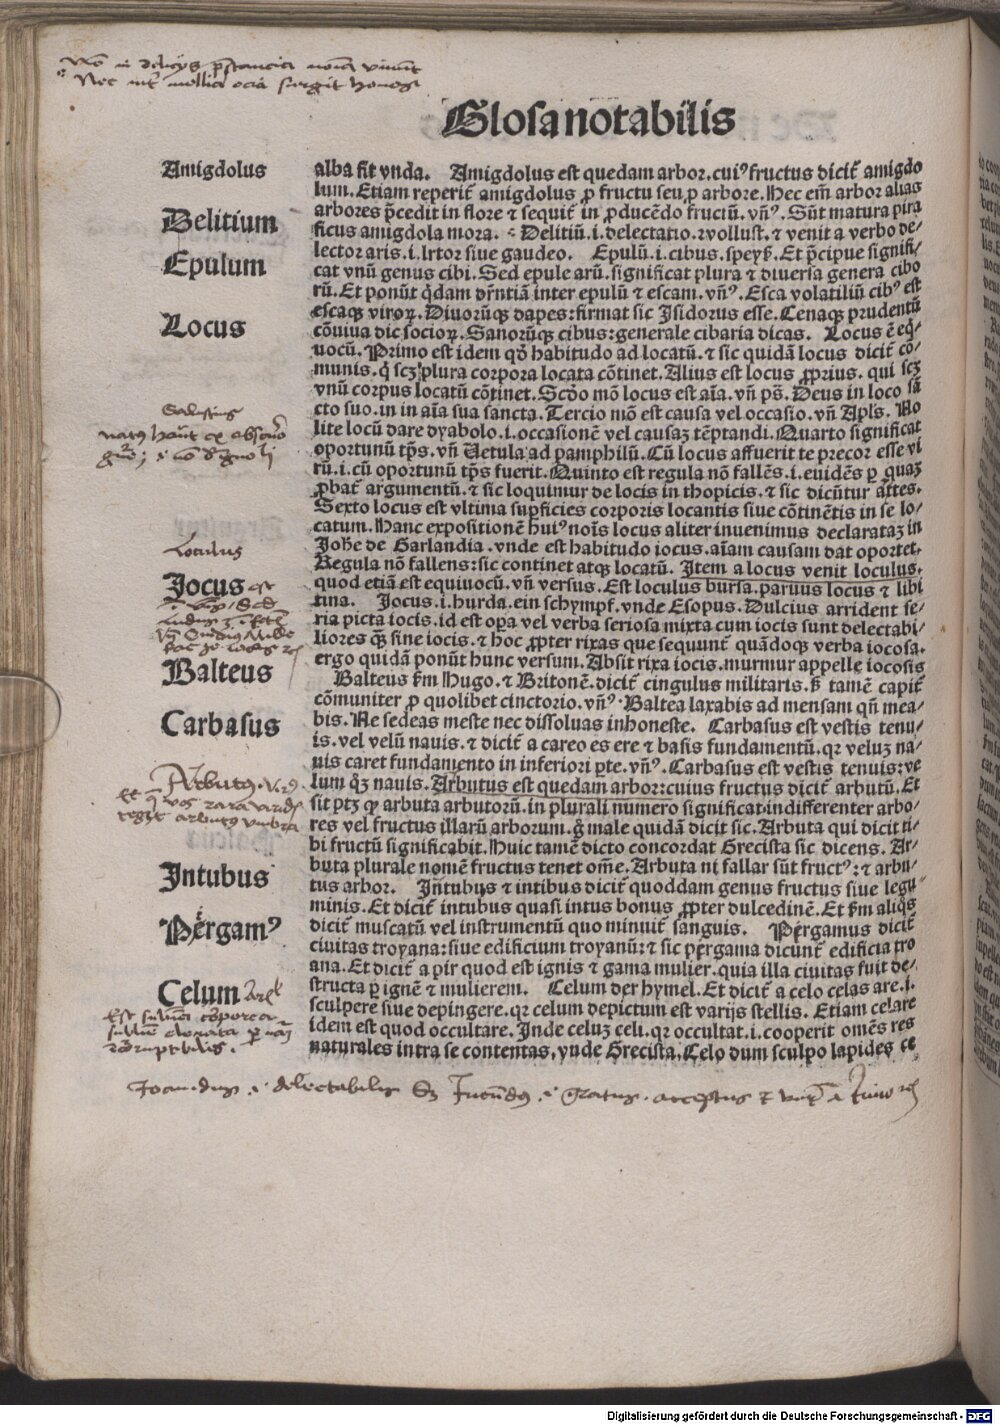 Glosa notabilis
Amigdolus
alba fit vnda. Amigdolus est quedam arbor. cuiꝰ fructus dicit̃ amigdo
lum. Etiam reperit̃ amigdolus ꝓ fructu seu ꝓ arbore. Hec em̃ arbor alias
Delitium
arbores p̃cedit in flore ⁊ sequit̃ in ꝓducẽdo fructũ. vñꝰ. Sũt matura pira
ficus amigdola mora. Delitiũ .i. delectatio. ⁊ volust. ⁊ venit a verbo de⸗
Epulum
lector aris .i. letor siue gaudeo. Epulũ .i. cibus. speyß. Et p̃cipue signifi⸗
cat vnũ genus cibi. Sed epule arũ. significat plura ⁊ diuersa genera cibo
rũ. Et ponũt q̃dam dr̃ntiã inter epulũ ⁊ escam. vñꝰ. Esca volatiliũ cibꝰ est
Locus
escaqꝫ viroꝝ. Diuorũqꝫ dapes: firmat sic Isidorus esse. Cenaqꝫ prudentũ
cõuiua dic socioꝝ. Sanorũqꝫ cibus: generale cibaria dicas. Locus ẽ eq̃⸗
uocũ. Primo est idem qd̃ habitudo ad locatũ. ⁊ sic quidã locus dicit̃ cõ⸗
munis. q̃ scꝫ plura corpora locata cõtinet. Alius est locus ꝓprius. qui scꝫ
vnũ corpus locatũ cõtinet. Scđo mõ locus est aĩa. vñ ps̃. Deus in loco sã
cto suo. in in aĩa sua sancta. Tercio mõ est causa vel occasio. vñ Apls̃. No
lite locũ dare dyabolo .i. occasionẽ vel causaꝫ tẽptandi. Quarto significat
oportunũ tp̃s. vñ Vetula ad pamphilũ. Cũ locus affuerit te precor esse vi
rũ .i. cũ oportunũ tp̃s fuerit. Quinto est regula nõ fallẽs .i. euidẽs ꝑ quaꝫ
ꝓbat̃ argumentũ. ⁊ sic loquimur de locis in thopicis. ⁊ sic dicũtur artes.
Sexto locus est vltima supficies corporis locantis siue cõtinẽtis in se lo⸗
catum. Hanc expositionẽ huiꝰ nois̃ locus aliter inuenimus declarataꝫ in
Loculus
Joh̃e de Garlandia. vnde est habitudo iocus. aĩam causam dat oportet.
Regula nõ fallens: sic continet atqꝫ locatũ. Item a locus venit loculus.
Jocus
quod etiã est equiuocũ. vñ versus. Est loculus bursa. paruus locus ⁊ libi
tina. Jocus .i. burda. ein schympf. vnde Esopus. Dulcius arrident se⸗
ria picta iocis. id est opa vel verba seriosa mixta cum iocis sunt delectabi⸗
liores q̃ꝫ sine iocis. ⁊ hoc ꝓpter rixas que sequunt̃ quãdoqꝫ verba iocosa.
Balteus
ergo quidã ponũt hunc versum. Absit rixa iocis. murmur appelle iocosis
Balteus ẜm Hugo. ⁊ Britonẽ. dicit̃ cingulus militaris. ß tamẽ capit̃
cõmuniter ꝓ quolibet cinctorio. vñꝰ. Baltea laxabis ad mensam qñ mea⸗
Carbasus
bis. Ne sedeas meste nec dissoluas inhoneste. Carbasus est vestis tenu⸗
is. vel velũ nauis. ⁊ dicit̃ a careo es ere ⁊ basis fundamentũ. qꝛ veluꝫ na⸗
uis caret fundamento in inferiori ꝑte. vñꝰ. Carbasus est vestis tenuis: ve
Arbutus
lum qꝫ nauis. Arbutus est quedam arbor: cuius fructus dicit̃ arbutũ. Et
sit ptꝫ ꝙ arbuta arbutorũ. in plurali numero significat indifferenter arbo⸗
res vel fructus illarũ arborum. g̃ male quidã dicit sic. Arbuta qui dicit ti⸗
bi fructũ significabit. Huic tamẽ dicto concordat Grecista sic dicens. Ar⸗
Intubus
buta plurale nomẽ fructus tenet om̃e. Arbuta ni fallar sũt fructꝰ: ⁊ arbu⸗
tus arbor. Intubus ⁊ intibus dicit̃ quoddam genus fructus siue legu⸗
minis. Et dicit̃ intubus quasi intus bonus ꝓpter dulcedinẽ. Et ẜm aliq̃s
Pergamꝰ
dicit̃ muscatũ vel instrumentũ quo minuit̃ sanguis. Pergamus dicit̃
ciuitas troyana: siue edificium troyanũ: ⁊ sic pergama dicunt̃ edificia tro
ana. Et dicit̃ a pir quod est ignis ⁊ gama mulier. quia illa ciuitas fuit de⸗
Celum
structa ꝑ ignẽ ⁊ mulierem. Celum der hymel. Et dicit̃ a celo celas are .i.
sculpere siue depingere. qꝛ celum depictum est varijs stellis. Etiam celare
idem est quod occultare. Inde celuꝫ celi. qꝛ occultat .i. cooperit omẽs res
naturales intra se contentas. vnde Grecista. Celo dum sculpo lapides ce
Digitalisierung gefördert durch die Deutsche Forschungsgemeinschaft - DFG